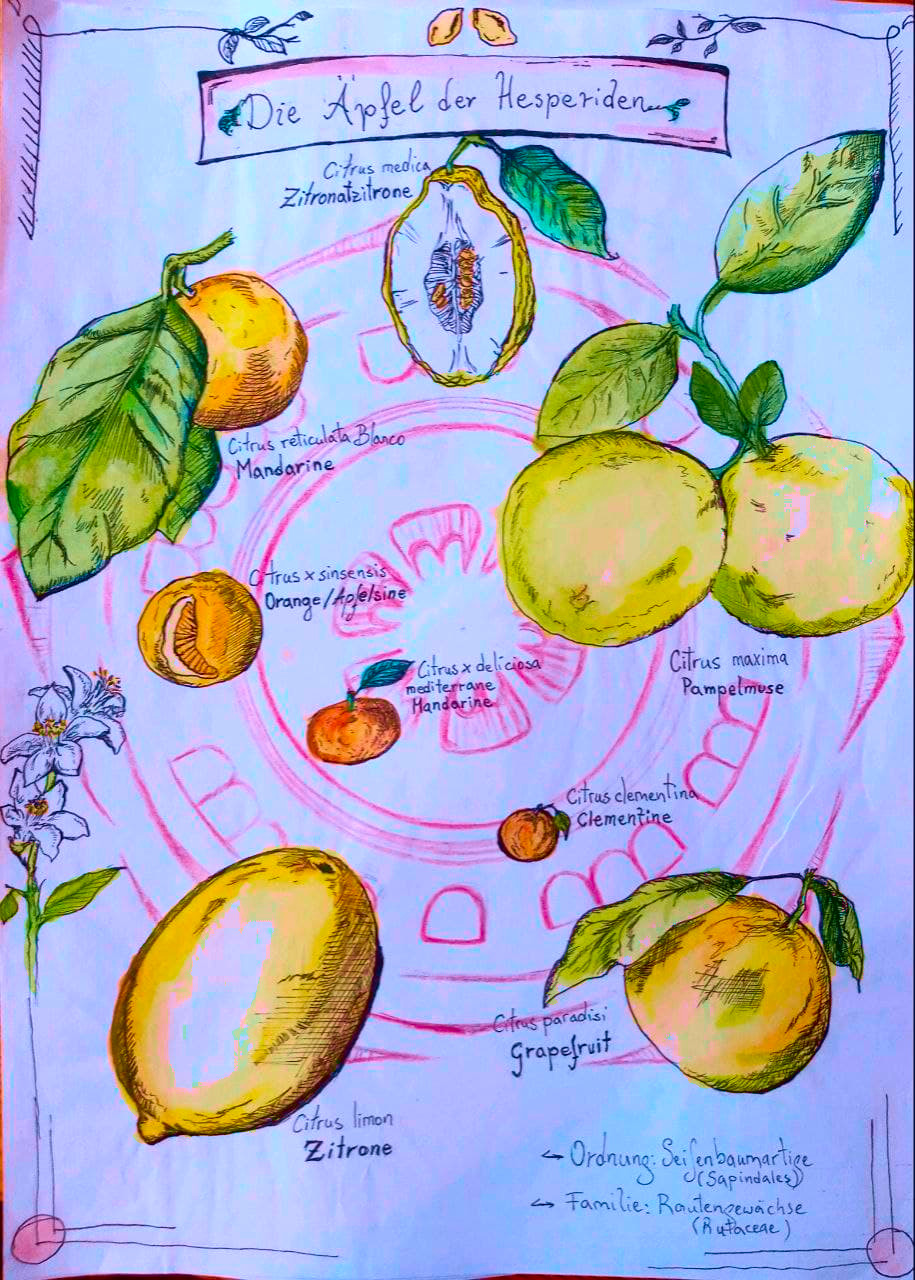 Die Äpfel der Hesperiden
Citrus medica
Zitronatzitrone
Citrus reticulata Blanco
Mandarine
Citrus x sinsensis
Orange/Apfelsine
Citrus x deliciosa
mediterrane
Mandarine
Citrus maxima
Pampelmuse
Citrus clementina
Clementine
Citrus paradisi
Grapefruit
Citrus limon
Zitrone
↪ Ordnung: Seifenbaumartige
(Sapindales)
↪ Familie: Rautengewächse
(Rutaceae)